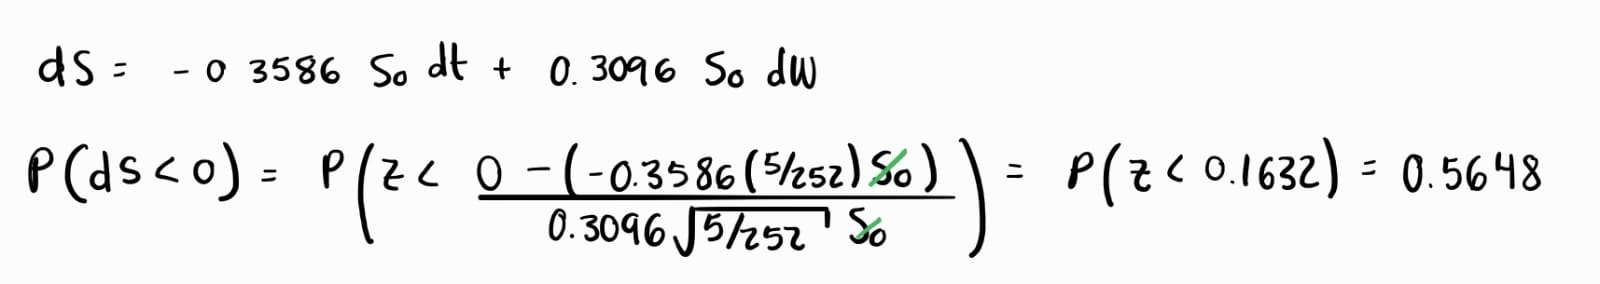 dS = - 0 3586 S₀ dt + 0.3096 S₀ dW
P(dS < 0) = P(z < (0 - (-0.3586(5/252)S₀)) / (0.3096√(5/252) S₀)) = P(z < 0.1632) = 0.5648